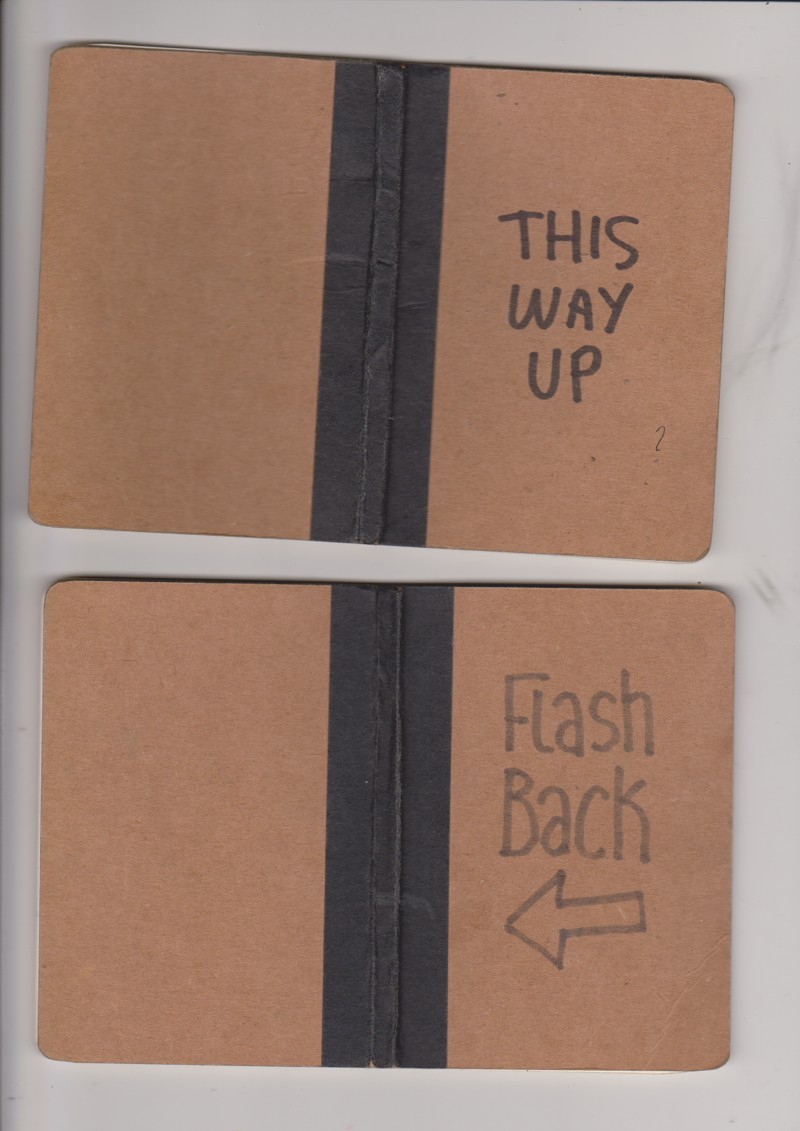 THIS
WAY
UP
?
Flash
Back